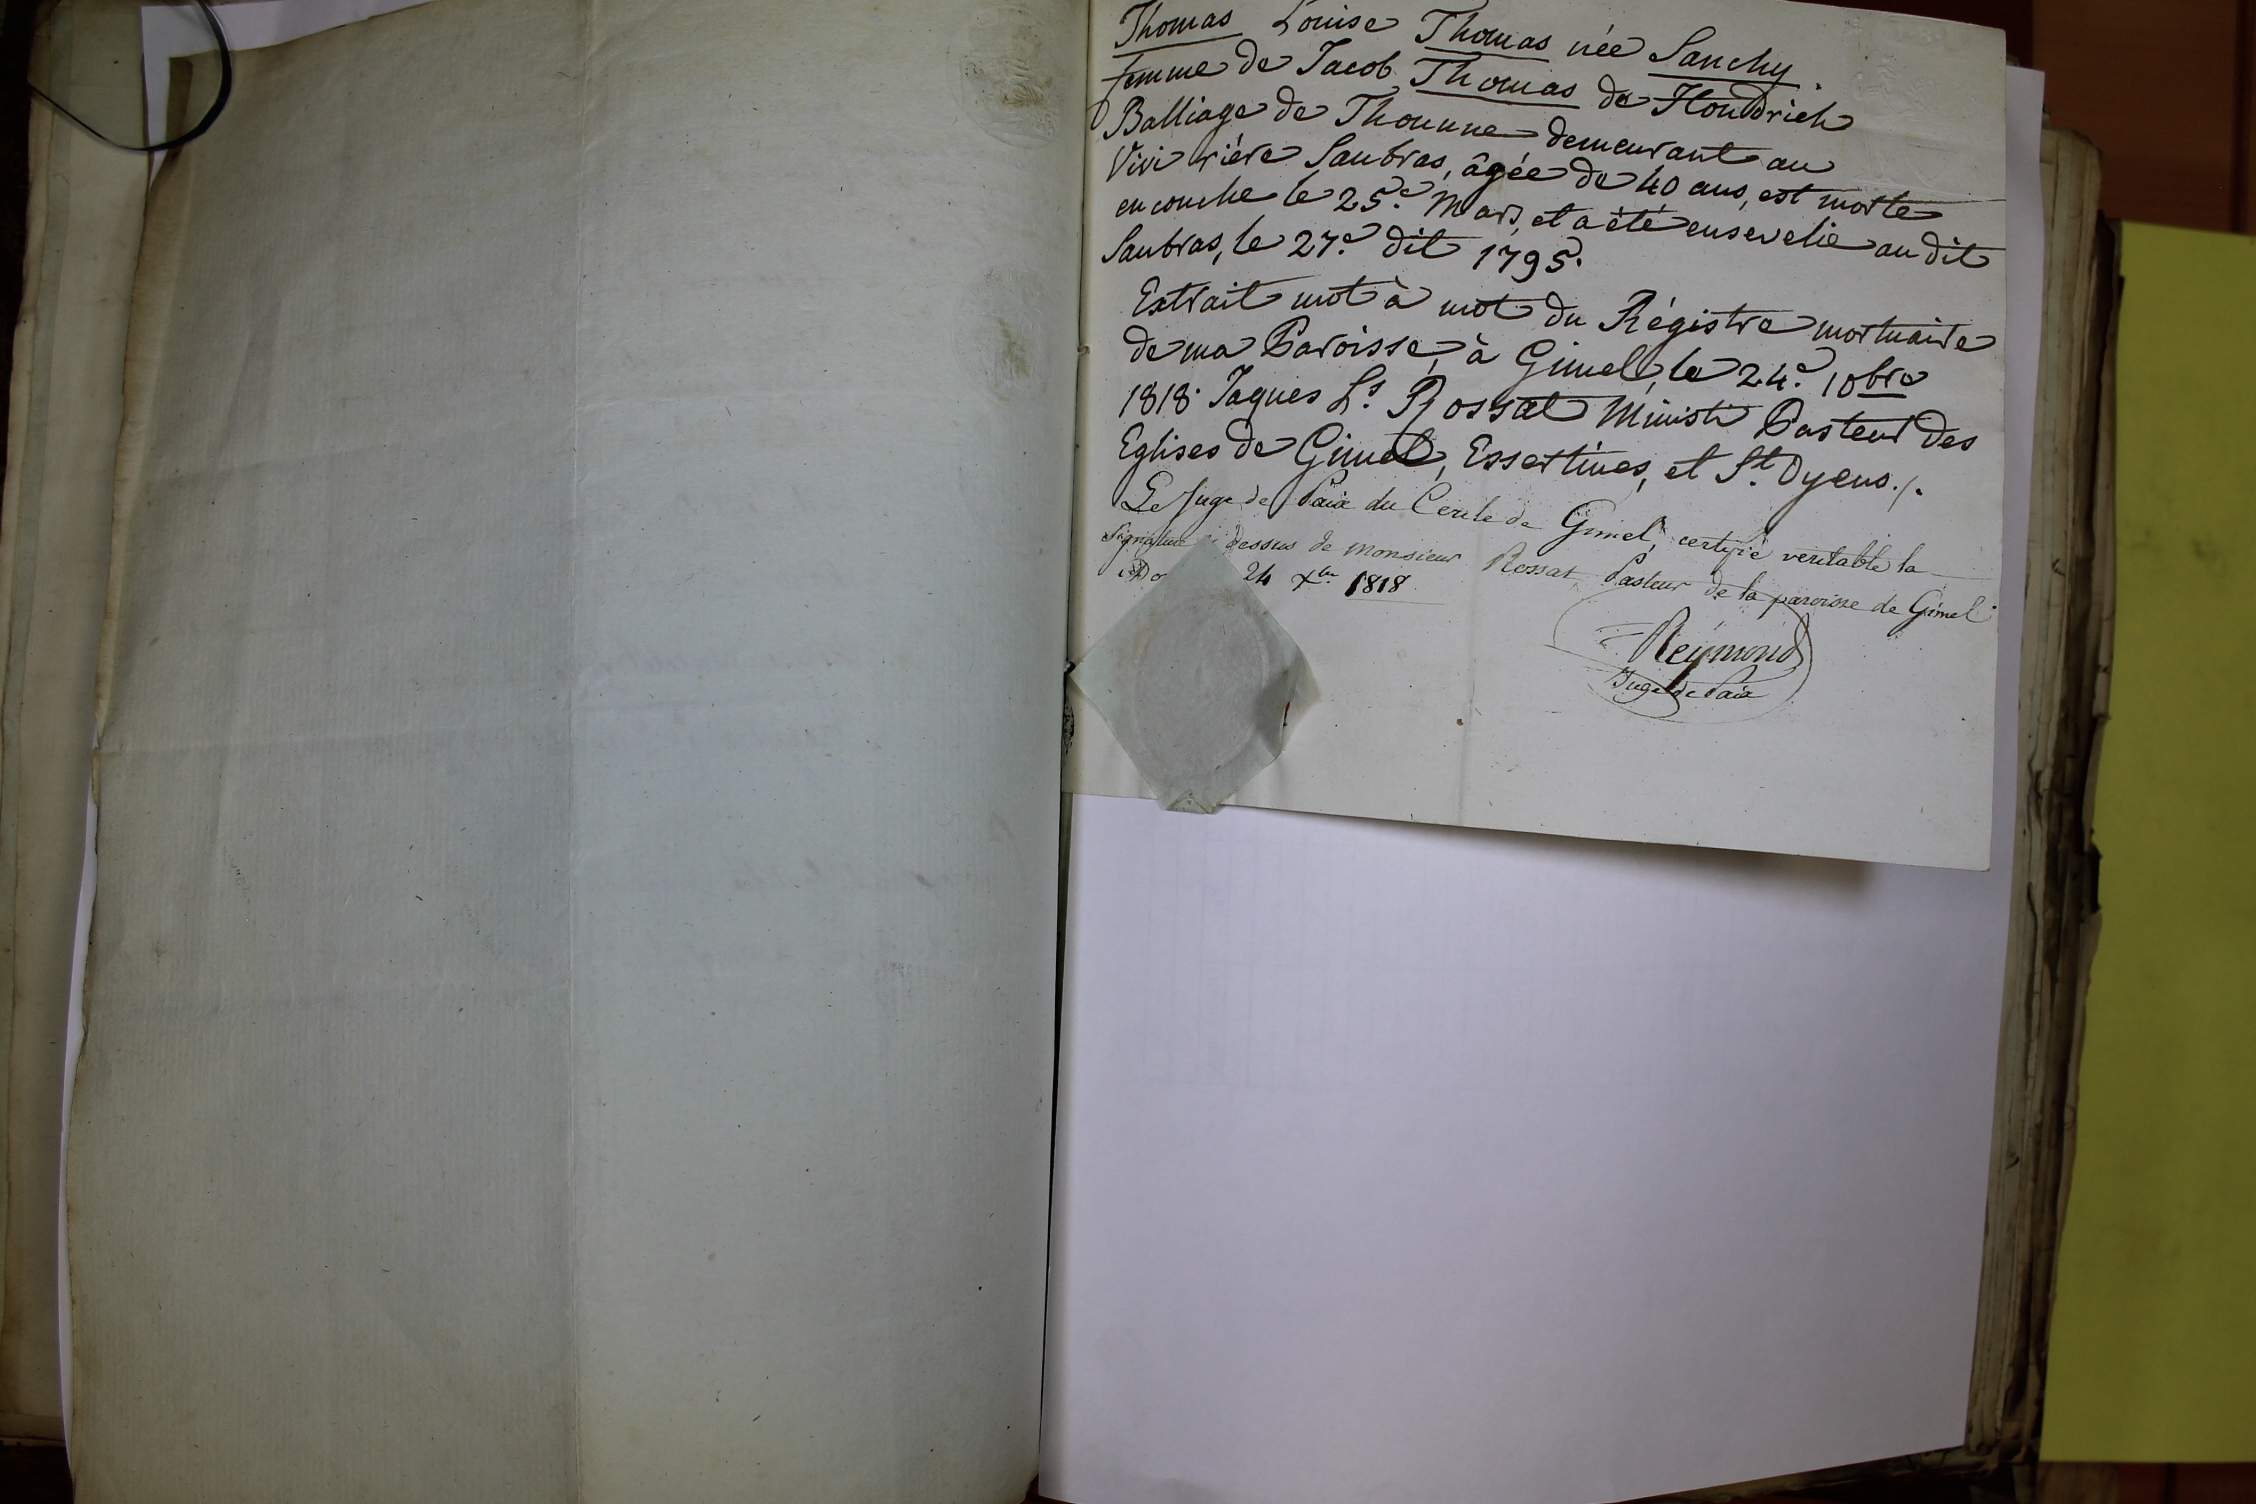 Thomas Louise Thomas née Sanchy
femme de Jacob Thomas de Hondrich
Balliage de Thounne demeurant au
Vivi rière Saubras, âgée de 40 ans, est morte
en couche le 25.e Mars, et a été ensevelie au dit
Saubras, le 27.e dit 1795.
Extrait mot à mot du Régistre mortuaire
de ma Paroisse, à Gimel, le 24.e 10bre
1818. Jaques Ls. Rossat Ministr Pasteur des
Eglises de Gimel, Essertines, et St. Oyens./.
Le Juge de Paix du Cercle de Gimel, certifie veritable la
Signature dessus de Monsieur Rossat Pasteur de la paroisse de Gimel
24 Xbre 1818
Reymond
Juge de Paix